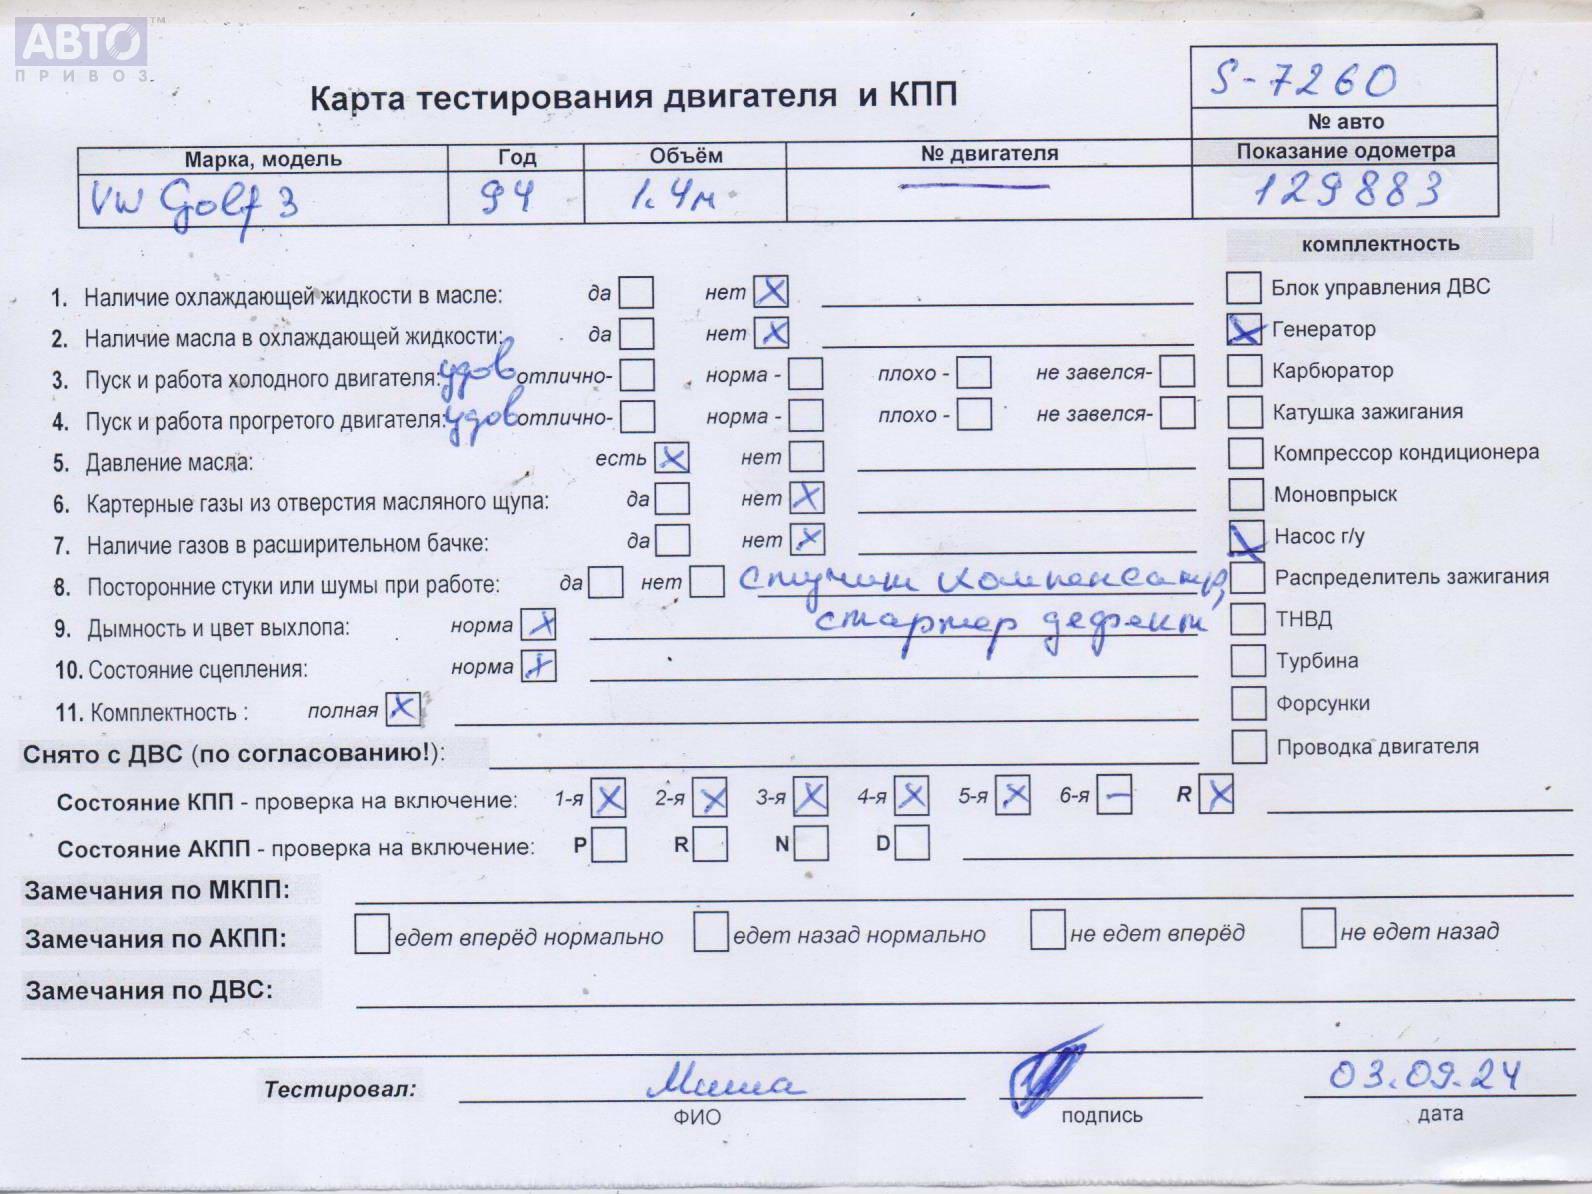 АВТО™
ПРИВОЗ
S-7260
Карта тестирования двигателя и КПП
№ авто
Марка, модель Год Объём № двигателя Показание одометра
VW Golf 3 94 1.4м — 129883
комплектность
1. Наличие охлаждающей жидкости в масле: да нет X Блок управления ДВС
2. Наличие масла в охлаждающей жидкости: да нет X X Генератор
3. Пуск и работа холодного двигателя: удов отлично- норма - плохо - не завелся- Карбюратор
4. Пуск и работа прогретого двигателя: удов отлично- норма - плохо - не завелся- Катушка зажигания
5. Давление масла: есть X нет Компрессор кондиционера
6. Картерные газы из отверстия масляного щупа: да нет X Моновпрыск
7. Наличие газов в расширительном бачке: да нет X X Насос г/у
8. Посторонние стуки или шумы при работе: да нет стучит компенсатр, Распределитель зажигания
9. Дымность и цвет выхлопа: норма X стартер дефект ТНВД
10. Состояние сцепления: норма X Турбина
11. Комплектность : полная X Форсунки
Снято с ДВС (по согласованию!): Проводка двигателя
Состояние КПП - проверка на включение: 1-я X 2-я X 3-я X 4-я X 5-я X 6-я — R X
Состояние АКПП - проверка на включение: P R N D
Замечания по МКПП:
Замечания по АКПП: едет вперёд нормально едет назад нормально не едет вперёд не едет назад
Замечания по ДВС:
Тестировал: Миша 03.09.24
ФИО подпись дата